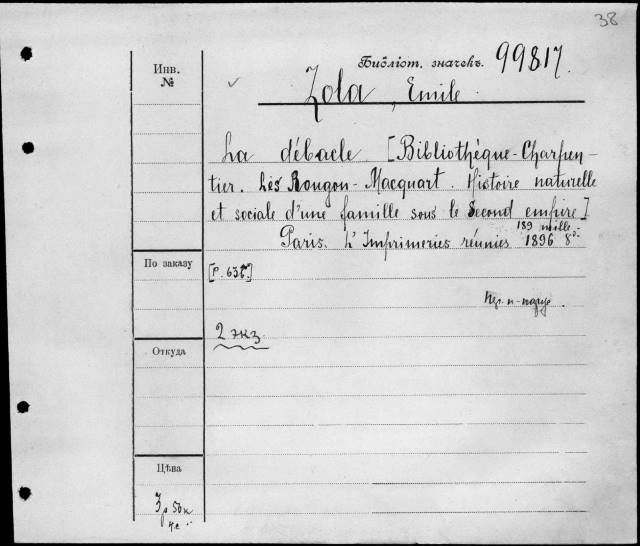 38
Библіот. значекъ. 99817.
Инв.
№
Zola, Emile
La débacle. [Bibliothèque-Charpen-
tier. Les Rougon-Macquart. Histoire naturelle
et sociale d'une famille sous le Second empire]
189 mille
Paris. L'Imprimeries réunies 1896 8º.
По заказу
[P. 635]
2 экз
Откуда
Цѣна
3 р 50 к